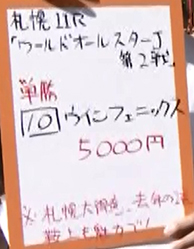 札幌11R
「ワールドオールスターJ
第2戦」
単勝
10 ウインフェニックス
5000円
※札幌大得意、去年の
鞍上も魅力ツ